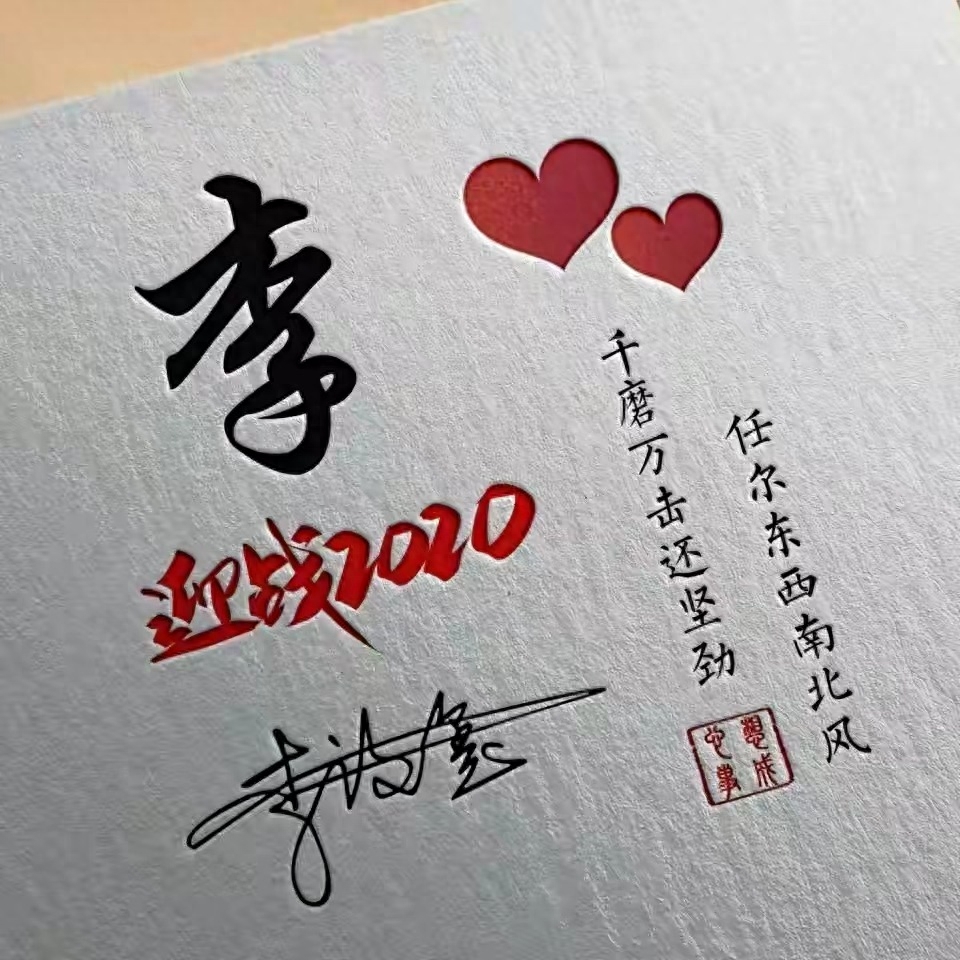 李
迎战2020
千磨万击还坚劲
任尔东西南北风
心想
事成
李